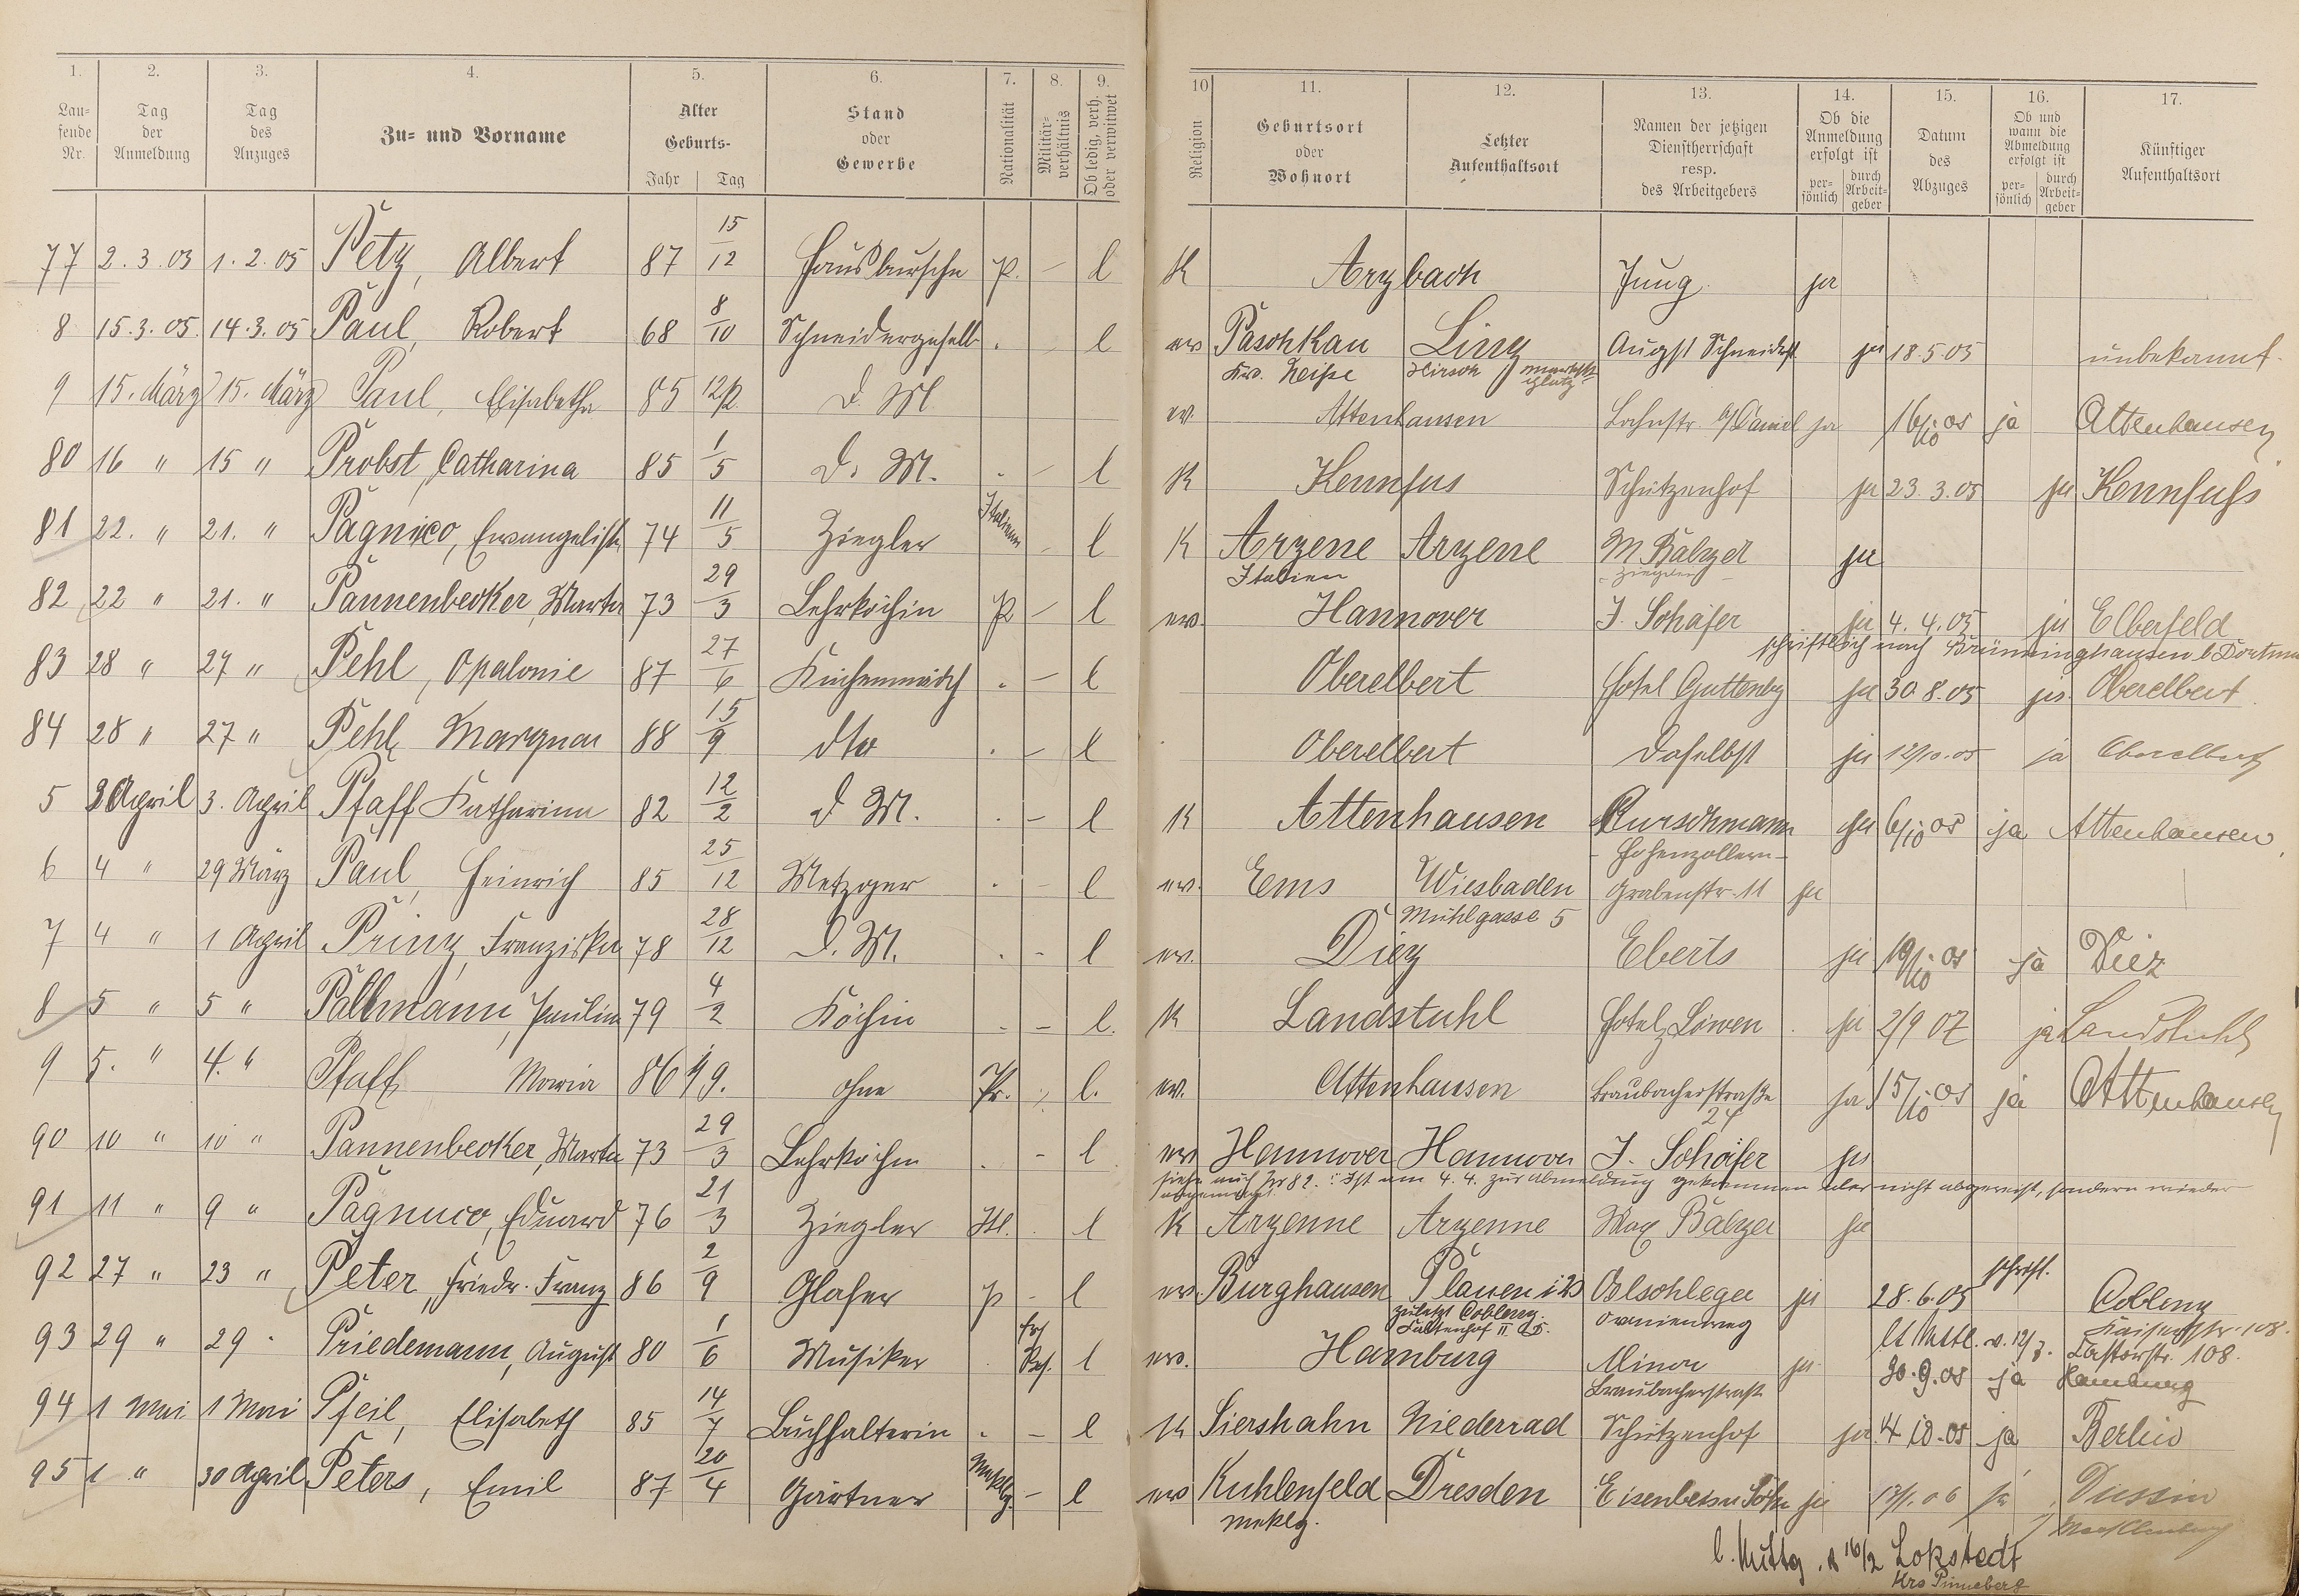 1. 2. 3. 4. 5. 6. 7. 8. 9. 10 11. 12. 13. 14. 15. 16. 17.
Laufende Nr. Tag der Anmeldung Tag des Anzuges Zu- und Vorname Alter Geburts- Jahr Tag Stand oder Gewerbe Nationalität Militärverhältnis Ob ledig, verh. oder verwitwet Religion Geburtsort oder Wohnort Letzter Aufenthaltsort Namen der jetzigen Dienstherrschaft resp. des Arbeitgebers Ob die Anmeldung erfolgt ist persönlich durch Arbeitgeber Datum des Abzuges Ob und wann die Abmeldung erfolgt ist persönlich durch Arbeitgeber Künftiger Aufenthaltsort
77 2.3.03 1.2.05 Petz, Albert 87 15/12 Hausbursche P. – l K Arzbach Jung ja
8 15.3.05. 14.3.05 Paul, Robert 68 8/10 Schneidergesell . l ev Paschkau Linz August Schneider ja 18.5.05 unbekannt.
Kr. Neiße Hirsch
9 15. März 15. März Paul, Elisabetha 85 12/2 D. M. ev. Attenhausen Lahnstr. ja 16/10 05 ja Attenhausen
80 16 " 15 " Probst, Catharina 85 1/5 D. M. . – l K Kennfus Schützenhof ja 23.3.05 ja Kennfuhs
81 22. " 21. " Pagnico, Ewangelista 74 11/5 Ziegler Italien – l K Arzene Arzene M Balzer ja
Italien Ziegler
82 22 " 21. " Pannenbecker, Marta 73 29/3 Lehrköchin P – l ev. Hannover J. Schäfer ja 4.4.05 ja Elberfeld
schriftlich nach Brünninghausen b Dortmund
83 28 " 27 " Pehl, Opalonie 87 27/6 Küchenmädch . – l Oberelbert Hotel Guttenbg ja 30.8.05 ja Oberelbert.
84 28 " 27 " Pehl, 88 15/9 dto . – l Oberelbert Daselbst ja 12/10.05 ja Oberelbert
5 3 April 3. April Pfaff Katharina 82 12/2 d M. . – l K Attenhausen Burschmann ja 6/10 05 ja Attenhausen
Hohenzollern
6 4 " 29 März Paul, Heinrich 85 25/12 Metzger . – l ev. Ems Wiesbaden Grabenstr. 11 ja
Mühlgasse 5
7 4 " 1 April Prinz, Franziska 78 28/12 D. M. . – l ev. Diez Eberts ja 19/10 05 ja Diez
8 5 " 5 " Pallmann, Paulina 79 4/2 Köchin . – l. K Landstuhl Hotel z Löwen ja 2/9 07 ja Landstuhl
9 5. " 4. " Pfaff, Maria 86 1/9. ohne Pr. l. ev. Attenhausen Braubacherstraße ja 15/10 05 ja Attenhausen
24
90 10 " 10 " Pannenbecker, Marta 73 29/3 Lehrköchin . – l ev Hannover Hannover J. Schäfer ja
siehe auch Nr 82. Ist am 4.4. zur Abmeldung gekommen aber nicht abgereist, sondern wieder
angemeldet
91 11 " 9 " Pagnuco, Eduard 76 21/3 Ziegler Itl. l K Arzenne Arzenne Max Balzer ja
92 27 " 23 " Peter, Friedr. Franz 86 2/9 Glaser P – l ev. Burghausen Plauen i V Oelschleger ja 28.6.05 schrftl. Coblenz
zuletzt Coblenz. Oranienweg Kaiserstr. 108.
93 29 " 29 " Priedemann, August 80 1/6 Musiker . Ers Res. l ev. Hamburg Minor ja lt Mittl. v. 12/7. Castorstr. 108.
Braubacherstraße 30.9.05 ja Hamburg
94 1 Mai 1 Mai Pfeil, Elisabeth 85 14/7 Buchhalterin . – l K Siershahn Niederrad Schützenhof ja 4 10.05 ja Berlin
95 1 " 30 April Peters, Emil 87 20/4 Gärtner Meklg. – l ev Kuhlenfeld Dresden Eisenbein Söhne ja 13/1.06 ja Dussin
meklg. Mecklenburg
l. Mittg. v 16/2 Lokstedt
Krs Pinneberg